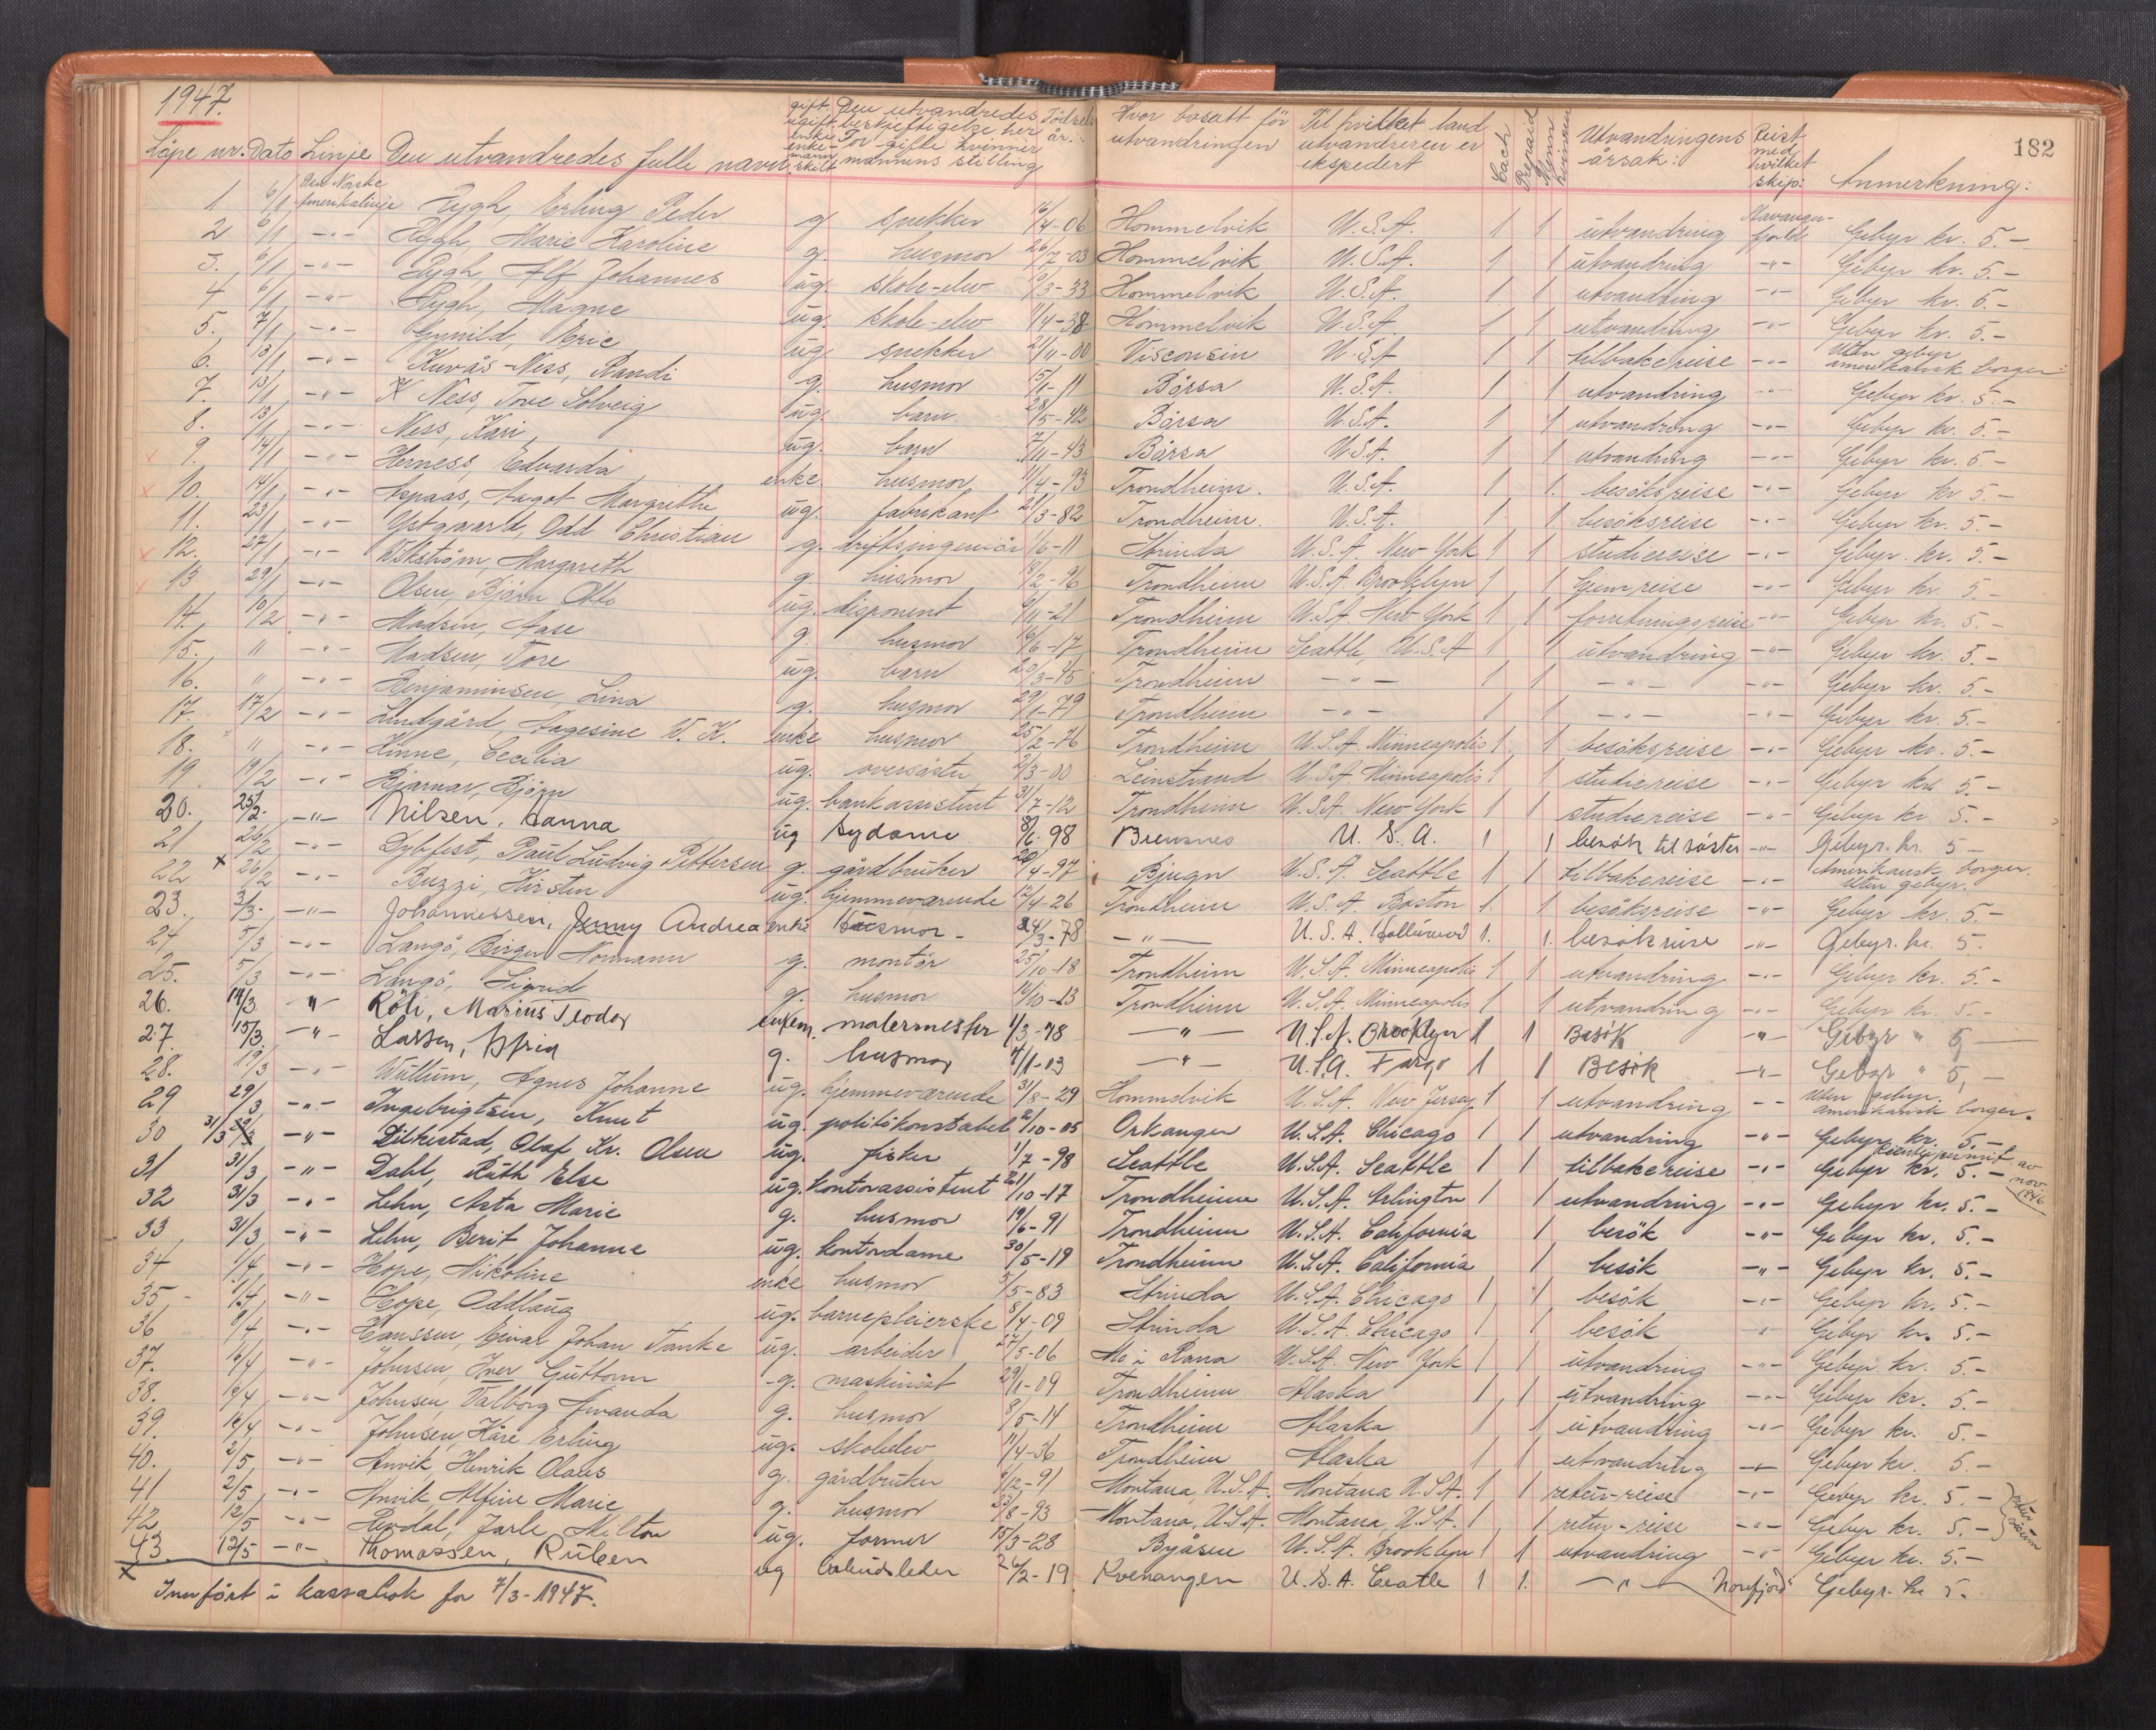 1947.
182
Löpe nr. Dato Linje Den utvandredes fulle navn gift ugift enke enke-mann skilt Den utvandredes beskjeftigelse her For gifte kvinner mannens stilling Födsels år: Hvor bosatt för utvandringen Til hvilket land utvandreren er ekspedert Cach Prepaid Menn Kvinner Utvandringens årsak: Reist med hvilket skip: Anmerkning:
1 6/1 Den Norske Amerikalinje Rygh, Erling Peder g snekker 16/4-06 Hommelvik U.S.A. 1 1 utvandring Stavanger-fjord Gebyr kr. 5.-
2 6/1 -"- Rygh, Marie Karoline g. husmor 26/7-03 Hommelvik U.S.A. 1 1 utvandring -"- Gebyr kr. 5.-
3. 6/1 -"- Rygh, Alf Johannes ug. skole-elev 9/3-33 Hommelvik U.S.A. 1 1 utvandring -"- Gebyr kr. 5.-
4 6/1 -"- Rygh, Magne ug. skole-elev 11/4-38 Hommelvik U.S.A. 1 1 utvandring -"- Gebyr kr. 5.-
5. 7/1 -"- Gunnild, Eric ug. snekker 21/11-00 Visconsin U.S.A 1 1 tilbakereise -"- Uten gebyr amerikansk borger
6. 13/1 -"- Kuvås-Ness, Randi g. husmor 15/1-11 Börsa U.S.A. 1 1 utvandring -"- Gebyr kr. 5.-
7. 13/1 -"- K Ness, Tove Solveig ug. barn 28/5-42 Börsa U.S.A. 1 1 utvandring -"- Gebyr kr. 5.-
8. 13/1 -"- Ness, Kari ug. barn 7/11-43 Börsa U.S.A. 1 1 utvandring -"- Gebyr kr. 5.-
x 9. 14/1 -"- Herness, Edvarda enke husmor 11/4-93 Trondheim. U.S.A. 1 1 besöksreise -"- Gebyr kr 5.-
x 10. 14/1 -"- Aspaas, Aagot Margrethe ug. fabrikant 21/3-82 Trondheim. U.S.A. 1 1 besöksreise -"- Gebyr kr. 5.-
11. 23/1 -"- Ystgaard, Odd Christian g. driftsingeniör 1/6-11 Strinda U.S.A. New York 1 1 studiereise -"- Gebyr kr. 5-
x 12. 27/1 -"- Wikström, Margareth g. husmor 8/2-96 Trondheim U.S.A. Brooklyn 1 1 hjemreise -"- Gebyr kr. 5-
x 13 29/1 -"- Olsen, Björn Otto ug. disponent 9/11-21 Trondheim U.S.A. New York 1 1 forretningsreise -"- Gebyr kr. 5.-
14. 10/2 -"- Madsen, Aase g. husmor 16/6-17 Trondheim Seattle, U.S.A 1 1 utvandring -"- Gebyr kr. 5.-
15. " -"- Madsen, Tore ug. barn 20/3-45 Trondheim -"- 1 1 -"- -"- Gebyr kr. 5.-
16. " -"- Benjaminsen, Lina g. husmor 29/1-79 Trondheim -"- 1 1 -"- -"- Gebyr kr. 5.-
17. 17/2 -"- Lindgård, Aagesine W. K. enke husmor 25/2-76 Trondheim U.S.A. Minneapolis 1 1 besöksreise -"- Gebyr kr. 5.-
18. " -"- Hinne, Cecilia ug. oversöster 2/3-00 Leinstrand U.S.A. Minneapolis 1 1 studiereise -"- Gebyr kr. 5.-
19 19/2 -"- Bjarnar, Björn ug. bankassistent 31/7-12 Trondheim U.S.A. New York 1 1 studiereise -"- Gebyr kr. 5.-
20. 25/2. -"- Nilsen, Hanna ug sydame 8/6. 98 U. S. A. 1 1 besök til söster -"- Gebyr. kr. 5-
21 26/2 -"- Dybfest, Paul Ludvig Pettersen g. gårdbruker 20/4-97 Bjugn U.S.A. Seattle 1 1 tilbakereise -"- Amerikansk borger. Uten gebyr.
22 x 26/2 -"- Buzzi, Kirsten ug. hjemmeværende 12/4-26 Trondheim U.S.A. Boston 1 1 besöksreise -"- Gebyr kr. 5.-
23. 3/3. -"- Johannessen, Jenny Andrea enke Husmor - 24/3-78 -"- U.S.A. 1. 1. besöksreise -"- Gebyr. kr. 5.
24 5/3 -"- Langö, Birger Normann g. montör 25/10-18 Trondheim U.S.A. Minneapolis 1 1 utvandring -"- Gebyr kr. 5.-
25. 5/3 -"- Langö, Sigrid g. husmor 16/10-23 Trondheim U.S.A. Minneapolis 1 1 utvandring -"- Gebyr kr. 5.-
26. 14/3 " Röli, Marius Teodor enkem. malermester 1/3-78 -"- U.S.A. Brooklyn 1 1 Besök -"- Gebyr " 5,-
27. 15/3 -"- Lassen, Astrid g. husmor 4/1-03 -"- U.S.A. Fargo 1 1 Besök -"- Gebyr " 5,-
28. 19/3 -"- Wullum, Agnes Johanne ug. hjemmeværende 31/8-29 Hommelvik U.S.A. New Jersey 1 1 utvandring -- Uten gebyr. amerikansk borger.
29 29/3 -"- Ingebrigtsen, Knut ug. politikonstabel 2/10-05 Orkanger U.S.A. Chicago 1 1 utvandring -"- Gebyr kr. 5.-
30 31/3 29/3 -"- Dilkestad, Olaf Kr. Olsen ug. fisker 1/7-98 Seattle U.S.A. Seattle 1 1 tilbakereise -"- Gebyr kr. 5.- Reentrypermit av nov. 1946
31 31/3 -"- Dahl, Ruth Else ug. kontorassistent 21/10-17 Trondheim U.S.A. Arlington 1 1 utvandring -"- Gebyr kr. 5.-
32 31/3 -"- Lehn, Asta Marie g. husmor 19/6-91 Trondheim U.S.A. California 1 besök -"- Gebyr kr. 5.-
33 31/3 -"- Lehn, Berit Johanne ug. kontordame 30/5-19 Trondheim U.S.A. California 1 besök -"- Gebyr kr. 5.-
34 1/4 -"- Hope, Nikoline enke husmor 5/5-83 Strinda U.S.A. Chicago 1 1 besök -"- Gebyr kr. 5.-
35. 1/4 -"- Hope, Oddlaug ug. barnepleierske 8/4-09 Strinda U.S.A. Chicago 1 1 besök " Gebyr kr. 5.-
36 9/4 -"- Hanssen, Einar Johan Tanke ug. arbeider 27/5-06 Mo i Rana U.S.A. New York 1 1 utvandring -"- Gebyr kr. 5.-
37. 16/4 -"- Johnsen, Iver Guttorm g. maskinist 29/1-09 Trondheim Alaska 1 1 utvandring -"- Gebyr kr. 5.-
38. 16/4 -"- Johnsen, Valborg Amanda g. husmor 8/5-14 Trondheim Alaska 1 1 utvandring -"- Gebyr kr. 5.-
39. 16/4 -"- Johnsen, Kåre Erling ug. skoleelev 11/4-36 Trondheim Alaska 1 1 utvandring -"- Gebyr kr. 5.-
40. 2/5 -"- Anvik, Henrik Olaus g. gårdbruker 6/12-91 Montana, U.S.A. Montana U.S.A. 1 1 retur-reise -"- Gebyr kr. 5.-
41 2/5 -"- Anvik, Alfine Marie g. husmor 23/8-93 Montana, U.S.A. Montana, U.S.A. 1 1 retur-reise -"- Gebyr kr. 5.-
42 12/5 -"- Jarle Milton ug. former 15/3-28 Byåsen U.S.A. Brooklyn 1 1 utvandring -"- Gebyr kr. 5.-
43. 12/5 -"- Thomassen, Ruben ug arbeidsleder 26/2-19 Kvenangen U.S.A. Ceatle 1 1. -"- Norefjord Gebyr. kr 5.-
x Innfört i kassabok for 7/3-1947.